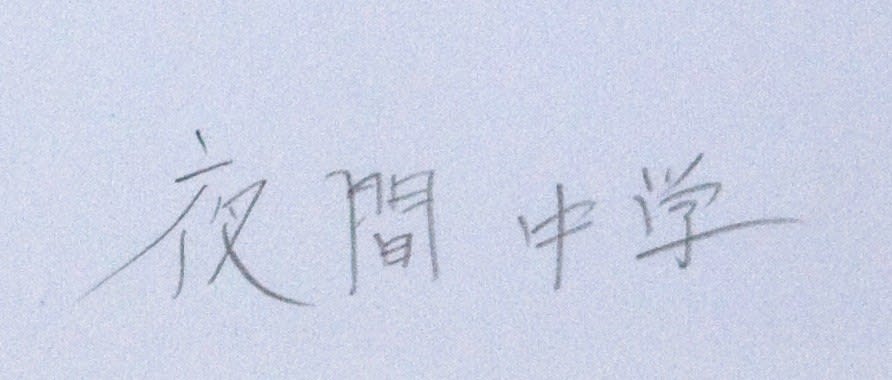 夜間中学